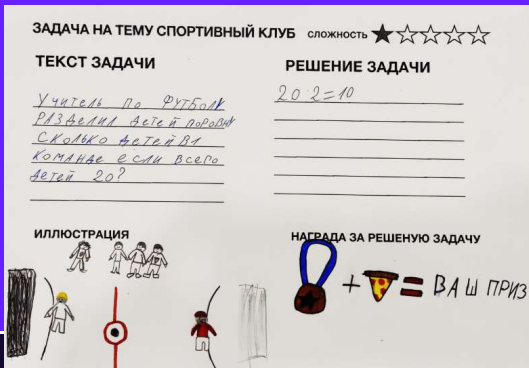 ЗАДАЧА НА ТЕМУ СПОРТИВНЫЙ КЛУБ СЛОЖНОСТЬ
ТЕКСТ ЗАДАЧИ
УЧИТЕЛЬ ПО ФУТБОЛУ
РАЗДЕЛИЛ ДЕТЕЙ ПОРОВНУ
СКОЛЬКО ДЕТЕЙ В 1
КОМАНДЕ ЕСЛИ ВСЕГО
ДЕТЕЙ 20?
РЕШЕНИЕ ЗАДАЧИ
20:2=10
ИЛЛЮСТРАЦИЯ
НАГРАДА ЗА РЕШЕНУЮ ЗАДАЧУ
+ = ВАШ ПРИЗ